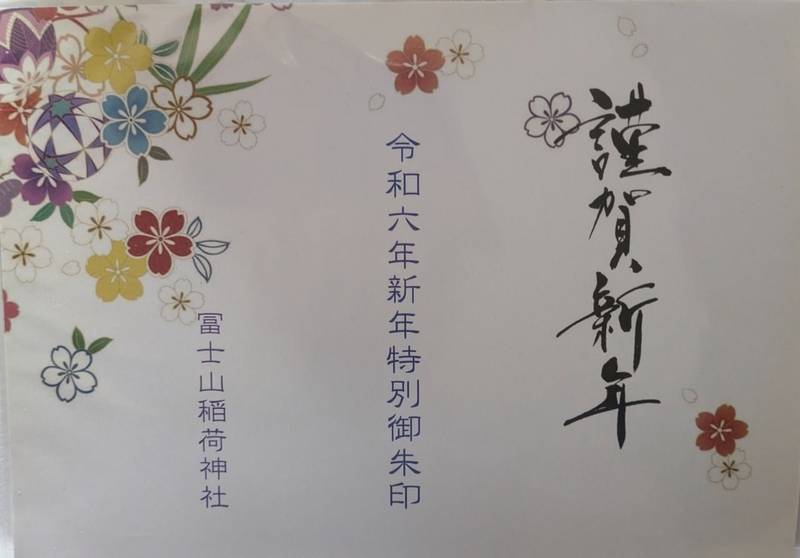 謹賀新年
令和六年新年特別御朱印
冨士山稲荷神社